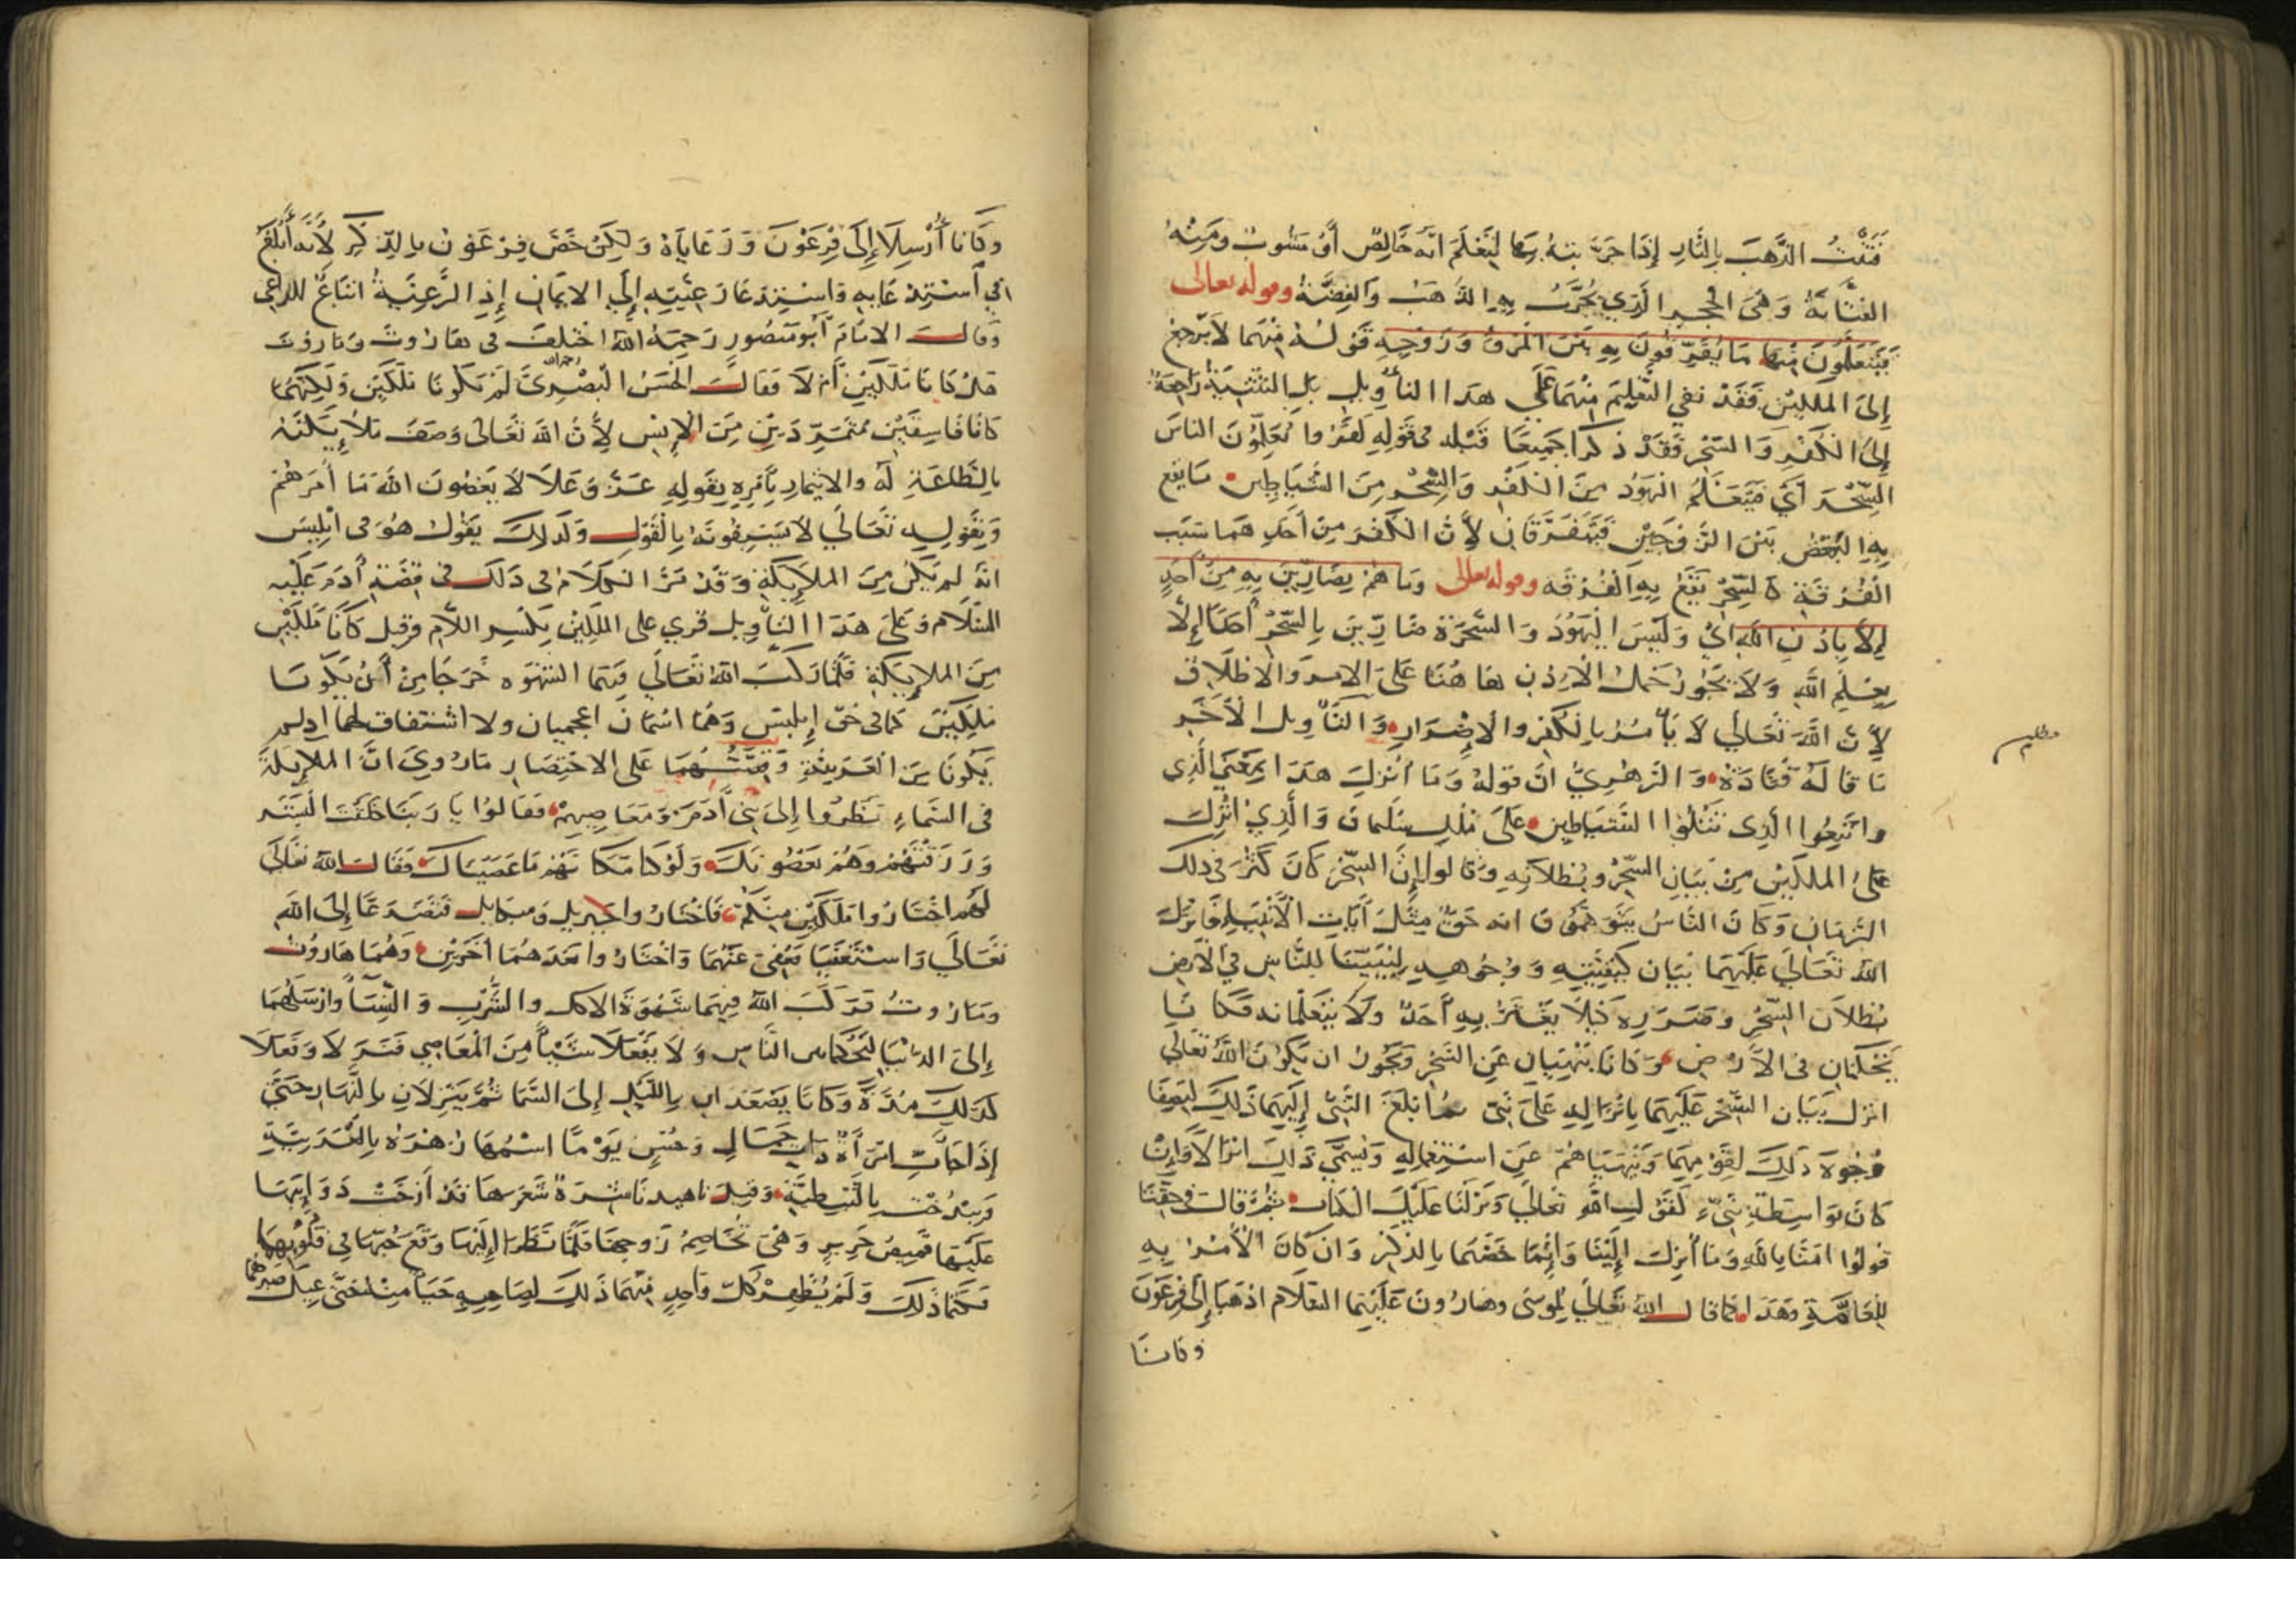 فَتَنْتُ الذَّهَبَ بِالنَّارِ إِذَا جَرَّبْتَهُ بِهَا لِتَعْلَمَ انَّهُ خَالِصٌ أَوْ مَشُوبٌ وَمِنْهُ
الفَتَّانَةُ وَهِيَ الحَجَرُ الَّذِي يُجَرَّبُ بِهِ الذَّهَبُ وَالفِضَّةُ وقوله تعالى
فَيَتَعَلَّمُونَ مِنْهُمَا مَا يُفَرِّقُونَ بِهِ بَيْنَ المَرْءِ وَزَوْجِهِ قَوْلُهُ مِنْهُمَا لَا يَرْجِعُ
إِلَى المَلَكَيْنِ فَقَدْ نَفَى التَّعْلِيمَ مِنْهُمَا عَلَى هَذَا التأويل بَلِ التَّثْنِيَةُ رَاجِعَةٌ
إِلَى الكُفْرِ وَالسِّحْرِ فَقَدْ ذُكِرَا جَمِيعًا قَبْلَه فى قَوْلِهِ كَفَرُوا يُعَلِّمُونَ الناسَ
السِّحْرَ أَيْ فَيَتَعَلَّمُ اليَهُودُ مِنَ الكُفْرِ وَالسِّحْرِ مِنَ الشَّيَاطِينِ مَا يَقَعُ
بِهِ البُغْضُ بَيْنَ الزَّوْجَيْنِ فَيَتَفَرَّقَانِ لِأَنَّ الكُفْرَ مِنْ أَحَدِهِمَا سَبَبُ
الْفُرْقَةِ كَالسِّحْرِ يَقَعُ بِهِ الْفُرْقَه وقوله تعالى وَمَا هُمْ بِضَارِّينَ بِهِ مِنْ أَحَدٍ
إِلَّا بِإِذْنِ اللَّهِ ايْ وَلَيْسَ اليَهُودُ وَالسَّحَرَةُ ضَارِّينَ بِالسِّحْرِ أَحَدًا إِلَّا
بِعِلْمِ اللَّهِ وَلَا يَجُوزُ حَمْلُ الْإِذْنِ هَاهُنَا عَلَى الامر وَالاطْلَاقِ
لِأَنَّ اللَّهَ تَعَالَى لَا يَأْمُرُ بِالْكُفْرِ وَالْإِضْرَارِ وَالتَّأْوِيلُ الْآخَرُ
مَا قَالَهُ قَتَادَةُ وَالزُّهْرِيُّ انَّ قَوْلَهُ وَمَا أُنْزِلَ هَذَا بِمَعْنَى الَّذِى
وَاتَّبَعُوا الَّذِى تَتْلُوا الشَّيَاطِينُ عَلَى مُلْكِ سُلَيمَانَ وَالَّذِي أُنْزِلَ
عَلَى المَلَكَيْنِ مِنْ بَيَانِ السِّحْرِ وَبُطْلَانِهِ وَقَالُوا إِنَّ السِّحْرَ كَانَ كَثُرَ فِى ذلِكَ
الزَّمَانِ وَكَانَ النَّاسُ يَتَوَهَّمُونَ انه حَقٌّ مِثْلُ آيَاتِ الْأَنْبِيَاءِ فَأَنْزَلَ
اللَّهُ تَعَالَى عَلَيْهِمَا بَيَانَ كَيْفِيَّتِهِ وَوُجُوهِهِ لِيُبَيِّنَا لِلنَّاسِ فِي الْأَرْضِ
بُطْلَانَ السِّحْرِ وَضَرَرِهِ كَيْلَا يَغْتَرَّ بِهِ أَحَدٌ وَلَا يَتَعَلَّمَانه فَكَانَا
يَحْكُمَانِ فى الأَرْضِ وَكَانَا يَنْهَيَانِ عَنِ السِّحْرِ وَيَجُوزُ ان يَكُونَ اللَّهُ تَعَالَى
انزل بَيَانَ السِّحْرِ عَلَيْهِمَا بِإِنْزَالِهِ عَلَى نَبِىٍّ مَا بَلَغَ النَّبِىُّ إِلَيْهِمَا ذَلِكَ لِيَصِفَا
وُجُوهَ ذَلِكَ لِقَوْمِهِمَا وَيَنْهَيَاهُمْ عَنِ اسْتِعْمَالِهِ وَيُسَمَّى ذَلِكَ انْزَالًا وَإِنْ
كَانَ بِوَاسِطَةِ نَبِىٍّ كَقَوْلِ اللَّهِ تَعَالَى وَنَزَّلْنَا عَلَيْكَ الْكِتَابَ ثُمَّ قَالَ فِى حَقِّنَا
قُولُوا امَنَّا بِاللَّهِ وَمَا أُنْزِلَ إِلَيْنَا وَإِنَّمَا خَصَّهُمَا بِالذِّكْرِ وَانْ كَانَ الْأَمْرُ بِهِ
لِلْعَامَّةِ وَهَذَا كَمَا قَالَ اللَّهُ تَعَالَى لِمُوسَى وَهَارُونَ عَلَيْهِمَا السَّلَام اذْهَبَا إِلَى فِرْعَوْنَ
وَكَانَا
مطلب
وَكَانَا أُرْسِلَا إِلَى فِرْعَوْنَ وَرَعَايَاهُ وَلَكِنْ خَصَّ فِرْعَوْنَ بِالذِّكْرِ لِأَنَّهُ أَبْلَغُ
فِي اسْتِرْعَايِهِ وَاسْتِدْعَا رَعِيَّتِهِ إِلَى الايمَانِ إِذِ الرَّعِيَّةُ اتْبَاعٌ لِلرَّاعِى
وَقَالَ الامَامُ أَبُو مَنْصُورٍ رَحِمَهُ اللهُ اخْتُلِفَ فى هَارُوتَ وَمَارُوتَ
هَلْ كَانَا مَلَكَيْنِ أَمْ لَا فَقَالَ الحَسَنُ البَصْرِىُّ رحمه الله لَمْ يَكُونَا مَلَكَيْنِ وَلَكِنَّهُمَا
كَانَا فَاسِقَيْنِ مُتَمَرِّدَيْنِ مِنَ الْإِنْسِ لِأَنَّ اللهَ تَعَالَى وَصَفَ مَلَائِكَتَهُ
بِالطَّاعَةِ لَهُ وَالائْتِمَارِ بِأَمْرِهِ بِقَوْلِهِ عَزَّ وَعَلَا لَا يَعْصُونَ اللهَ مَا أَمَرَهُمْ
وَبِقَوْلِهِ تَعَالَى لَا يَسْبِقُونَهُ بِالْقَوْلِ وَكَذلِكَ يَقُولُ هُوَ فى ابْلِيسَ
انَّهُ لم يَكُنْ مِنَ المَلَايِكَةِ وَقَدْ مَرَّ الكَلَامُ فى ذَلكَ فى قِصَّةِ أدَمَ عَلَيْهِ
السَّلَام وَعَلَى هَذَا التَّأْوِيلِ قُرِي على المَلِكَيْنِ بِكَسْرِ اللَّام وقيل كَانَا مَلَكَيْنِ
مِنَ المَلَايِكَةِ فَلَمَّا رَكَّبَ اللهُ تَعَالَى فِيهِمَا الشَّهْوَه خَرَجَا مِنْ أَنْ يَكُونَا
مَلَكَيْنِ كَمَا فى حَقِّ إِبْلِيسَ وَهُمَا اسْمَانِ اعجميان ولا اشْتِقَاقَ لَهُمَا اذ لم
يَكُونَا مِنَ العَرَبِيَّةِ وَقِصَّتُهُمَا عَلَى الاخْتِصَارِ مَا رُوِيَ انَّ المَلَايِكَةَ
فى السَّمَاءِ نَظَرُوا إِلَى بَنِى أَدَمَ وَمَعَاصِيهِمْ فَقَالُوا يَا رَبَّنَا خَلَقْتَ البَشَرَ
وَرَزَقْتَهُمْ وَهُمْ يَعْصُونَكَ وَلَوْ كُنَّا مَكَانَهُمْ مَا عَصَيْنَاكَ فَقَالَ اللهُ تَعَالَى
لَهُم اخْتَارُوا مَلَكَيْنِ مِنْكُمْ فَاخْتَارُوا جِبْرِيل وَمِيكَايِل فَتَضَرَّعَا إِلَى اللهِ
تَعَالَى وَاسْتَعْفَيَا فَعُفِيَ عَنْهُمَا وَاخْتَارُوا بَعْدَهُمَا أخَرَيْنِ وَهُمَا هَارُوتُ
وَمَارُوتُ فَرَكَّبَ اللهُ فِيهِمَا شَهْوَةَ الاكل وَالشُّرْبِ وَالنِّسَاءِ وَارْسَلَهُمَا
إِلَى الدُّنْيَا لِيَحْكُمَا بين النَّاسِ وَلَا يَفْعَلَا شَيْأً مِنَ الْمَعَاصِي فَنَزَلَا وَفَعَلَا
كَذَلِكَ مُدَّةً وَكَانَا يَصْعَدَانِ بِاللَّيْلِ إِلَى السَّمَا ثُمَّ يَنْزِلَانِ بِالنَّهَارِ حَتَّى
إِذَا جَاءَتِ امْرَأَةٌ ذَاتُ جَمَالٍ وَحُسْنٍ يَوْمًا اسْمُهَا زُهْرَةُ بِالْعَرَبِيَّةِ
وَبِيدُخْت بِالنَّبَطِيَّةِ وَقِيلَ نَاهِيد نَاشِرَةً شَعَرَهَا قَدْ أَرْخَتْ ذَوَايِبَهَا
عَلَيْهَا قَمِيصُ حَرِيرٍ وَهِيَ تُخَاصِمُ زَوْجَهَا فَلَمَّا نَظَرَا إِلَيْهَا وَقَعَ حُبُّهَا فِى قُلُوبِهِمَا
فَكَتَمَا ذَلِكَ وَلَمْ يُظْهِرْ كُلُّ وَاحِدٍ مِنْهُمَا ذَلِكَ لِصَاحِبِهِ حَيَاءً مِنْهُ حَتَّى عِيلَ صَبْرُهُمَا